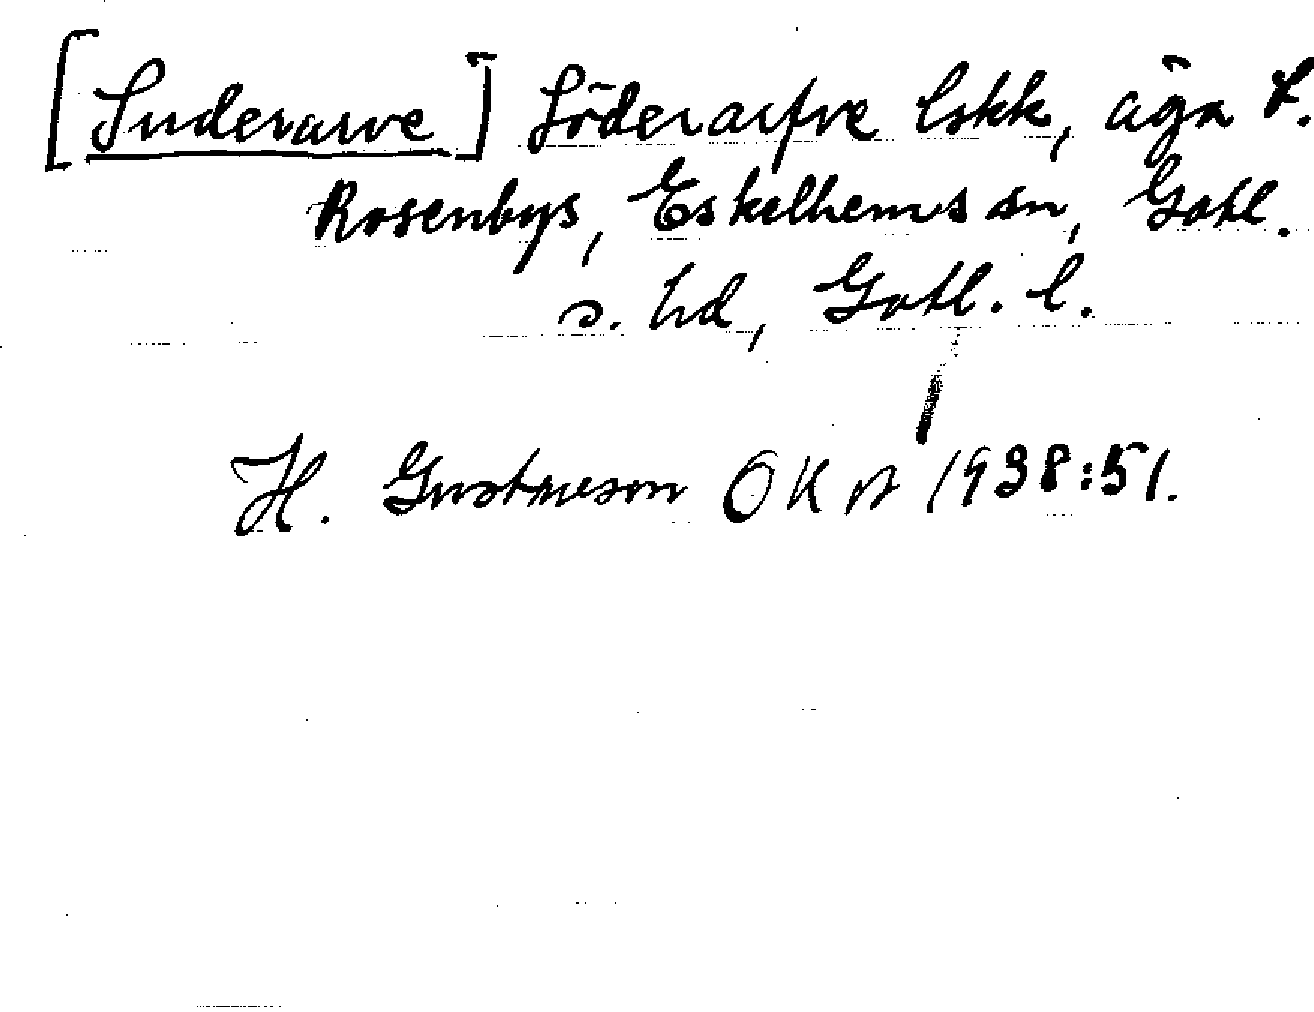 [Suderarve] Söderarfve lskk, äga L.
Rosenbys, Eskelhems sn, Gotl.
s. hd, Gotl. l.
H. Gustavson OKA 1938:51.